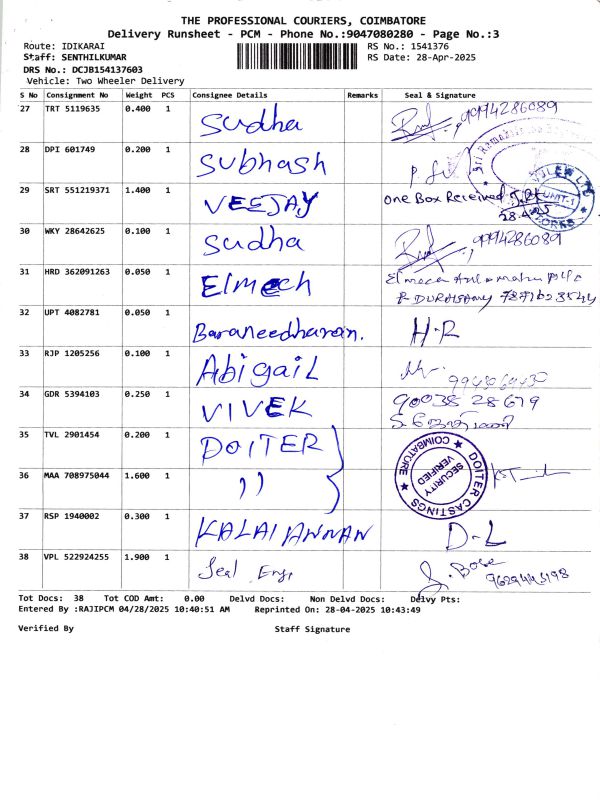 THE PROFESSIONAL COURIERS, COIMBATORE
Delivery Runsheet - PCM - Phone No.:9047080280 - Page No.:3
Route: IDIKARAI RS No.: 1541376
Staff: SENTHILKUMAR RS Date: 28-Apr-2025
DRS No.: DCJB154137603
Vehicle: Two Wheeler Delivery
S No Consignment No Weight PCS Consignee Details Remarks Seal & Signature
27 TRT 5119635 0.400 1 Sudha 9994286089
28 DPI 601749 0.200 1 Subhash
29 SRT 551219371 1.400 1 VEEJAY One Box Received
UNIT-1
WORKS
30 WKY 28642625 0.100 1 Sudha 9994286089
31 HRD 362091263 0.050 1 Elmech
32 UPT 4082781 0.050 1 Baraneedharan. H-R
33 RJP 1205256 0.100 1 Abigail
34 GDR 5394103 0.250 1 VIVEK 90038 28679
35 TVL 2901454 0.200 1 DOITER
DOITER CASTINGS
COIMBATORE
SECURITY
VERIFIED
36 MAA 708975044 1.600 1 ))
37 RSP 1940002 0.300 1 KALAIANNAN D-L
38 VPL 522924255 1.900 1 Seal Engi S. Bose
Tot Docs: 38 Tot COD Amt: 0.00 Delvd Docs: Non Delvd Docs: Delvy Pts:
Entered By :RAJIPCM 04/28/2025 10:40:51 AM Reprinted On: 28-04-2025 10:43:49
Verified By Staff Signature